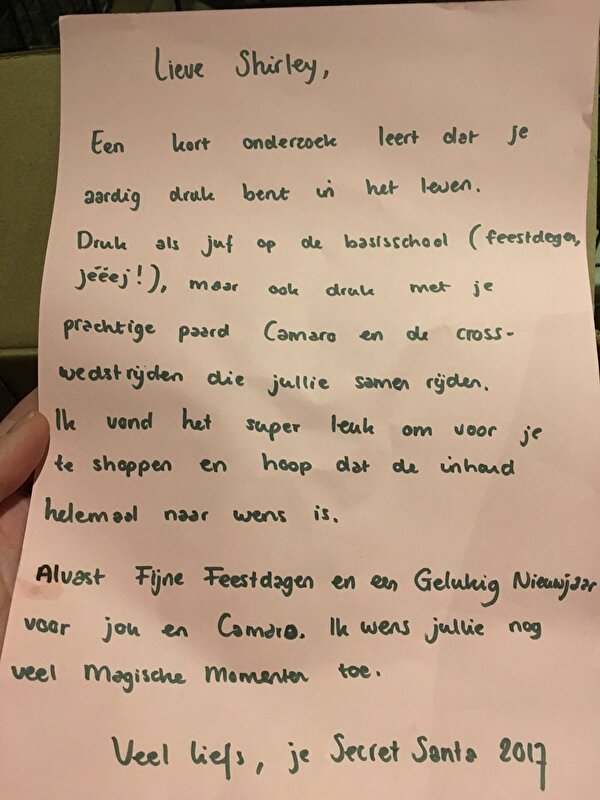 Lieve Shirley,
Een kort onderzoek leert dat je
aardig druk bent in het leven.
Druk als juf op de basisschool (feestdagen,
jeëej!), maar ook druk met je
prachtige paard Camaro en de cross-
wedstrijden die jullie samen rijden.
Ik vond het super leuk om voor je
te shoppen en hoop dat de inhoud
helemaal naar wens is.
Alvast Fijne Feestdagen en een Gelukkig Nieuwjaar
voor jou en Camaro. Ik wens jullie nog
veel Magische Momenten toe.
Veel liefs, je Secret Santa 2017